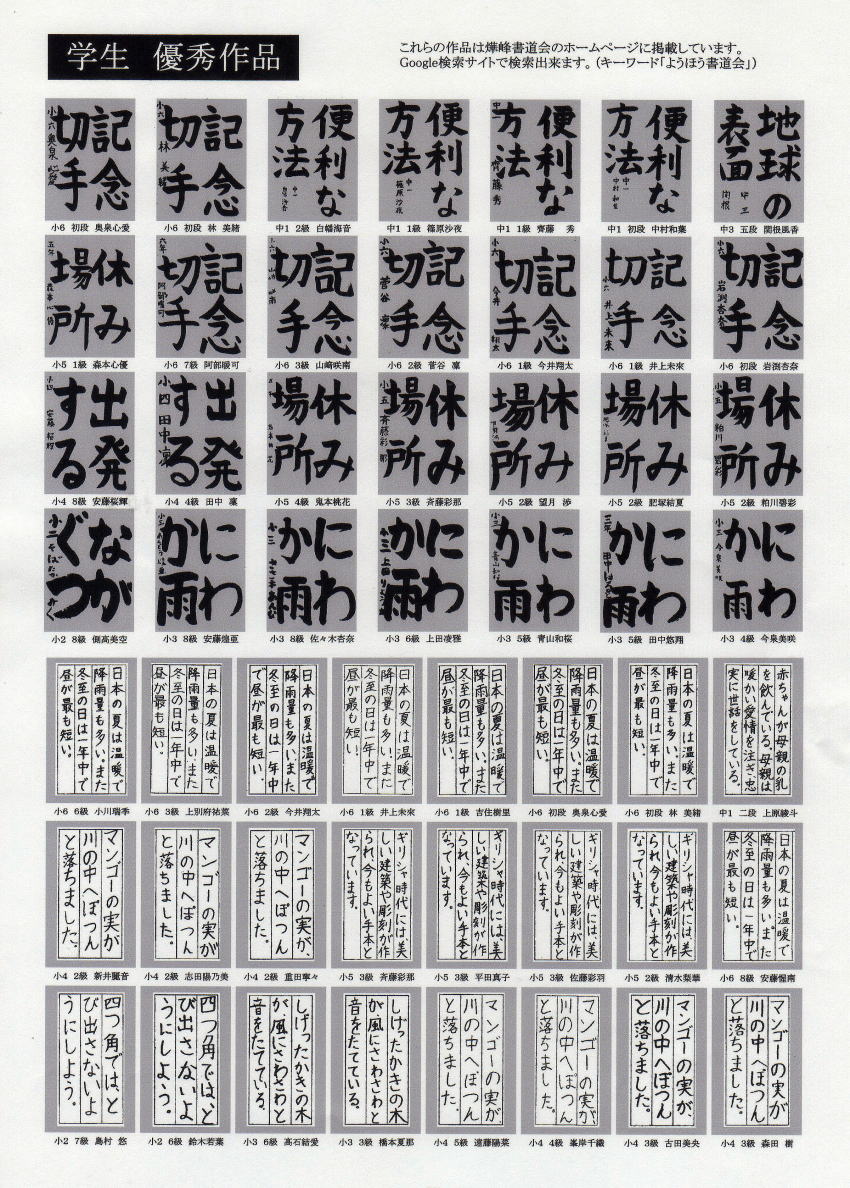 学生 優秀作品
これらの作品は燁峰書道会のホームページに掲載しています。
Google検索サイトで検索出来ます。(キーワード「ようほう書道会」)
地球の
表面
便利な
方法
便利な
方法
便利な
方法
便利な
方法
記念
切手
記念
切手
中3 五段 関根風香
中1 初段 中村和葉
中1 1級 齊藤 秀
中1 1級 篠原沙夜
中1 2級 白幡海音
小6 初段 林 美緒
小6 初段 奥泉心愛
記念
切手
記念
切手
記念
切手
記念
切手
記念
切手
記念
切手
休み
場所
小6 初段 岩渕杏奈
小6 1級 井上未來
小6 1級 今井翔太
小6 2級 菅谷 凜
小6 3級 山﨑咲南
小6 7級 阿部暖可
小5 1級 森本心優
休み
場所
休み
場所
休み
場所
休み
場所
休み
場所
出発
する
出発
する
小5 2級 粕川碧彩
小5 2級 肥塚結夏
小5 2級 望月 渉
小5 3級 斉藤彩那
小5 4級 鬼本桃花
小4 4級 田中 凜
小4 8級 安藤桜輝
にわ
か雨
にわ
か雨
にわ
か雨
にわ
か雨
にわ
か雨
にわ
か雨
なが
ぐつ
小3 4級 今泉美咲
小3 5級 田中悠翔
小3 5級 青山和桜
小3 6級 上田凌雅
小3 8級 佐々木杏奈
小3 8級 安藤煌亜
小2 8級 側高美空
赤ちゃんが母親の乳
を飲んでいる。母親は
暖かい愛情を注ぎ、忠
実に世話をしている。
日本の夏は温暖で
降雨量も多い。また
冬至の日は一年中で
昼が最も短い。
日本の夏は温暖で
降雨量も多い。また
冬至の日は一年中で
昼が最も短い。
日本の夏は温暖で
降雨量も多い。また
冬至の日は一年中で
昼が最も短い。
日本の夏は温暖で
降雨量も多い。また
冬至の日は一年中で
昼が最も短い。
日本の夏は温暖
降雨量も多い。また
冬至の日は一年中
で昼が最も短い。
日本の夏は温暖で
降雨量も多い。また
冬至の日は一年中で
昼が最も短い。
日本の夏は温暖で
降雨量も多い。また
冬至の日は一年中で
昼が最も短い。
中1 二段 上原綾斗
小6 初段 林 美緒
小6 初段 奥泉心愛
小6 1級 吉住樹里
小6 1級 井上未來
小6 2級 今井翔太
小6 3級 上別府祐菜
小6 6級 小川瑞季
日本の夏は温暖で
降雨量も多い。また
冬至の日は一年中で
昼が最も短い。
ギリシャ時代には、美
しい建築や彫刻が作
られ、今もよい手本と
なっています。
ギリシャ時代には、美
しい建築や彫刻が作
られ、今もよい手本と
なっています。
ギリシャ時代には、美
しい建築や彫刻が作
られ、今もよい手本と
なっています。
ギリシャ時代には、美
しい建築や彫刻が作
られ、今もよい手本と
なっています。
マンゴーの実が、
川の中へぽつん
と落ちました。
マンゴーの実が
川の中へぽつん
と落ちました。
マンゴーの実が
川の中へぽつん
と落ちました。
小6 8級 安藤惺南
小5 2級 清水梨華
小5 3級 佐藤彩羽
小5 3級 平田真子
小5 3級 斉藤彩那
小4 2級 重田寧々
小4 2級 志田陽乃美
小4 2級 新井麗音
マンゴーの実が
川の中へぽつん
と落ちました。
マンゴーの実が、
川の中へぽつん
と落ちました。
マンゴーの実が、
川の中へぽつん
と落ちました。
マンゴーの実が、
川の中へぽつん
と落ちました。
しげったかきの木
が風にさわさわと
音をたてている。
しげったかきの木
が風にさわさわと
音をたてている。
四つ角では、と
び出さないよ
うにしよう。
四つ角では、と
び出さないよ
うにしよう。
小4 3級 森田 樹
小4 3級 古田美央
小4 4級 峯岸千織
小4 5級 遠藤陽菜
小3 3級 橋本夏那
小3 6級 高石結愛
小2 6級 鈴木若葉
小2 7級 島村 悠